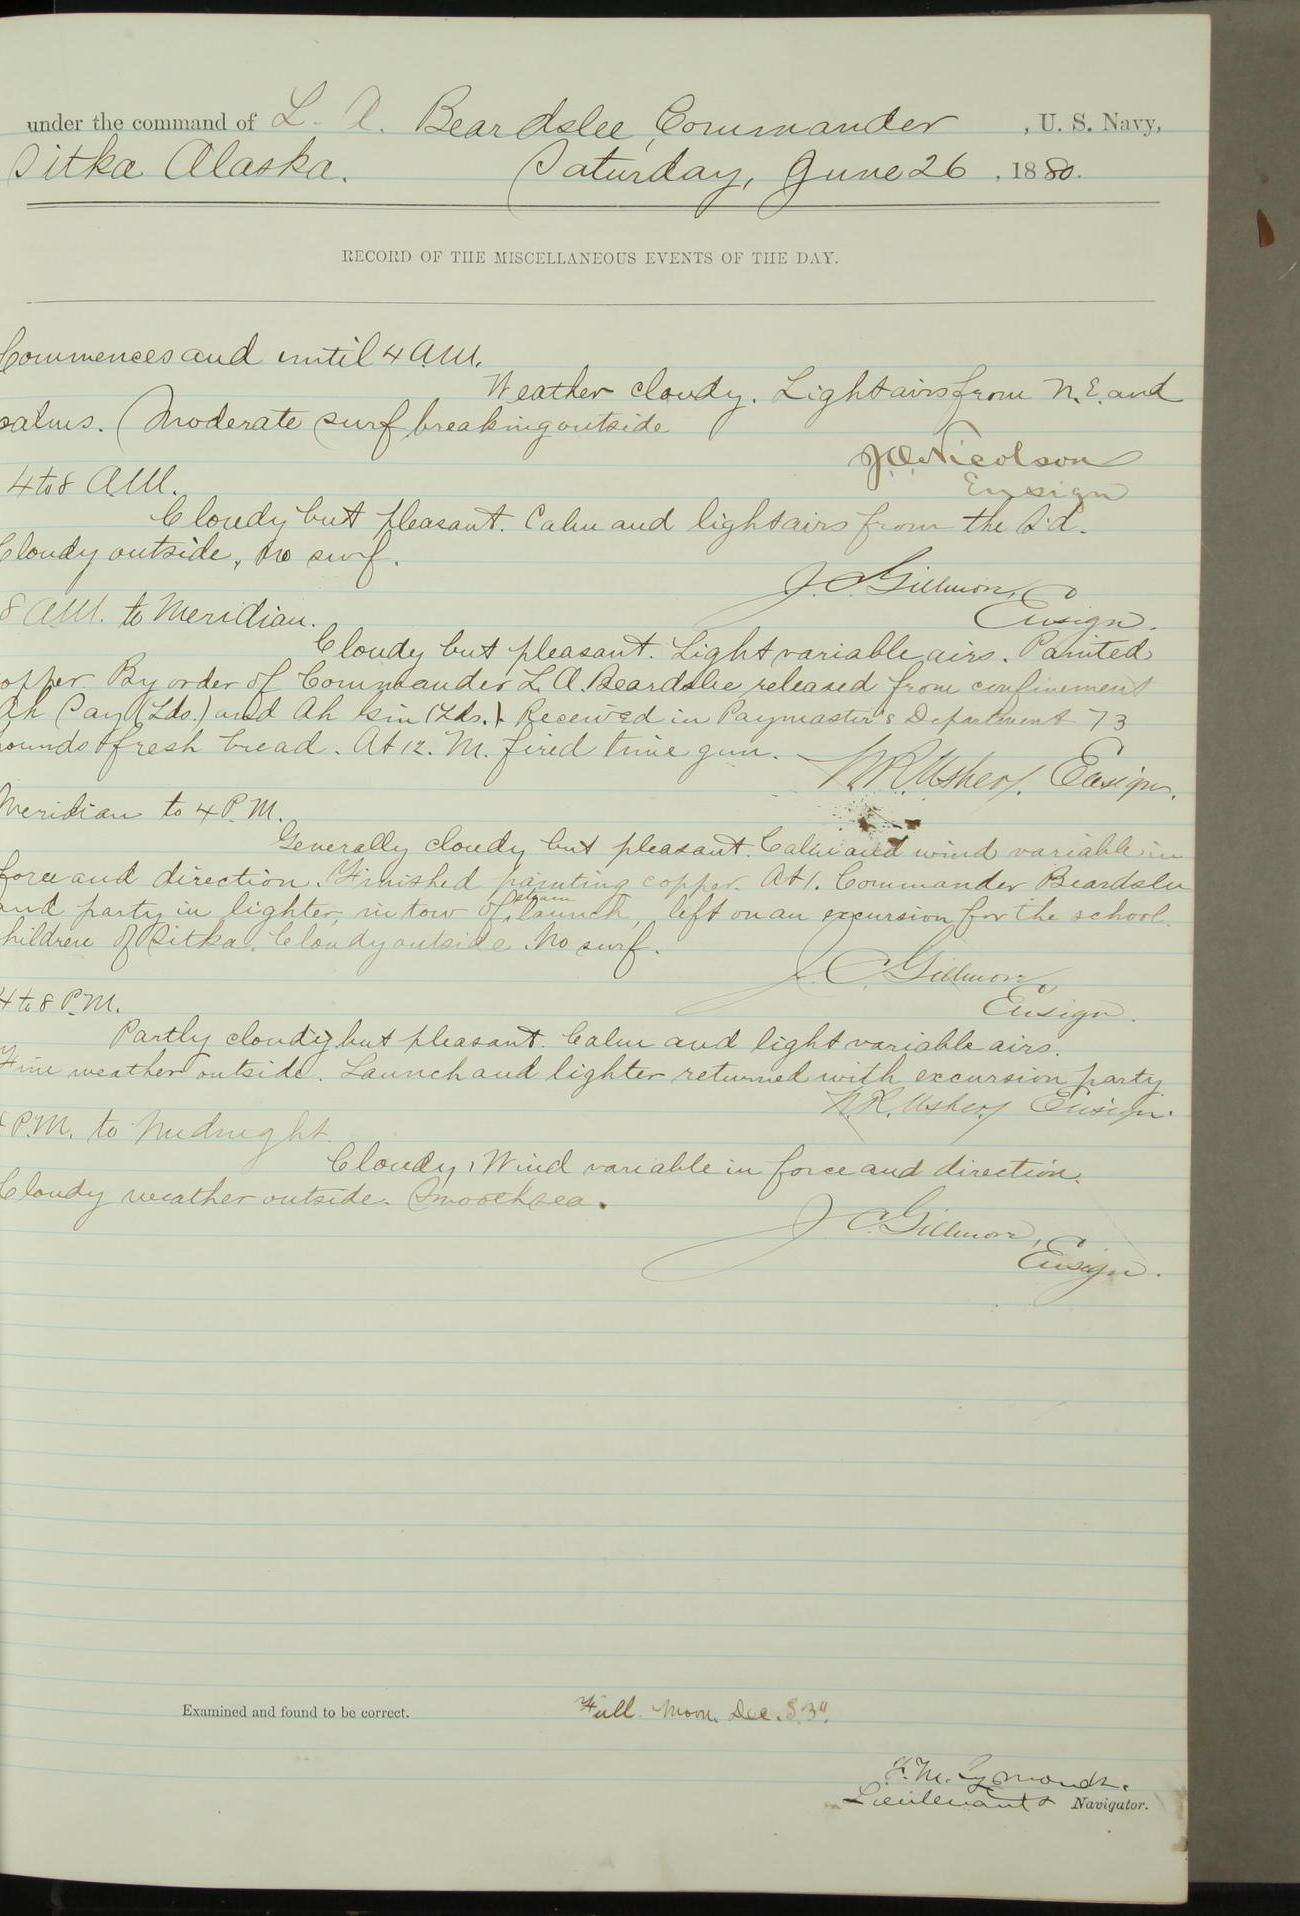 under the command of L. A. Beardslee, Commander , U. S. Navy,
Sitka Alaska. Saturday, June 26 , 1880.
RECORD OF THE MISCELLANEOUS EVENTS OF THE DAY.
Commences and until 4 A.M.
Weather cloudy. Light airs from N.E. and
calms. Moderate surf breaking outside
J.O. Nicolson
Ensign
4 to 8 A.M.
Cloudy but pleasant. Calm and light airs from the S'd.
Cloudy outside, no surf.
J. C. Gillmore,
Ensign.
8 A.M. to Meridian.
Cloudy but pleasant. Light variable airs. Painted
opper By order of Commander L. A. Beardslee released from confinement
Ah Cay (Lds.) and Ah Sin (Lds.) Received in Paymaster's Department 73
ounds fresh bread. At 12. M. fired time gun.
N.R. Usher, Ensign.
Meridian to 4 P.M.
Generally cloudy but pleasant. Calm and wind variable in
force and direction. Finished painting copper. At 1. Commander Beardslee
and party in lighter, in tow of steam launch, left on an excursion for the school
hildren of Sitka. Cloudy outside. No surf.
J. C. Gillmore
Ensign.
4 to 8 P.M.
Partly cloudy but pleasant. Calm and light variable airs.
Fine weather outside. Launch and lighter returned with excursion party
N.R. Usher, Ensign.
8 P.M. to Midnight.
Cloudy, Wind variable in force and direction.
Cloudy weather outside. Smooth sea.
J. C. Gillmore,
Ensign.
Examined and found to be correct. Full Moon. Dec.
F. M. Symonds.
Lieutenant & Navigator.